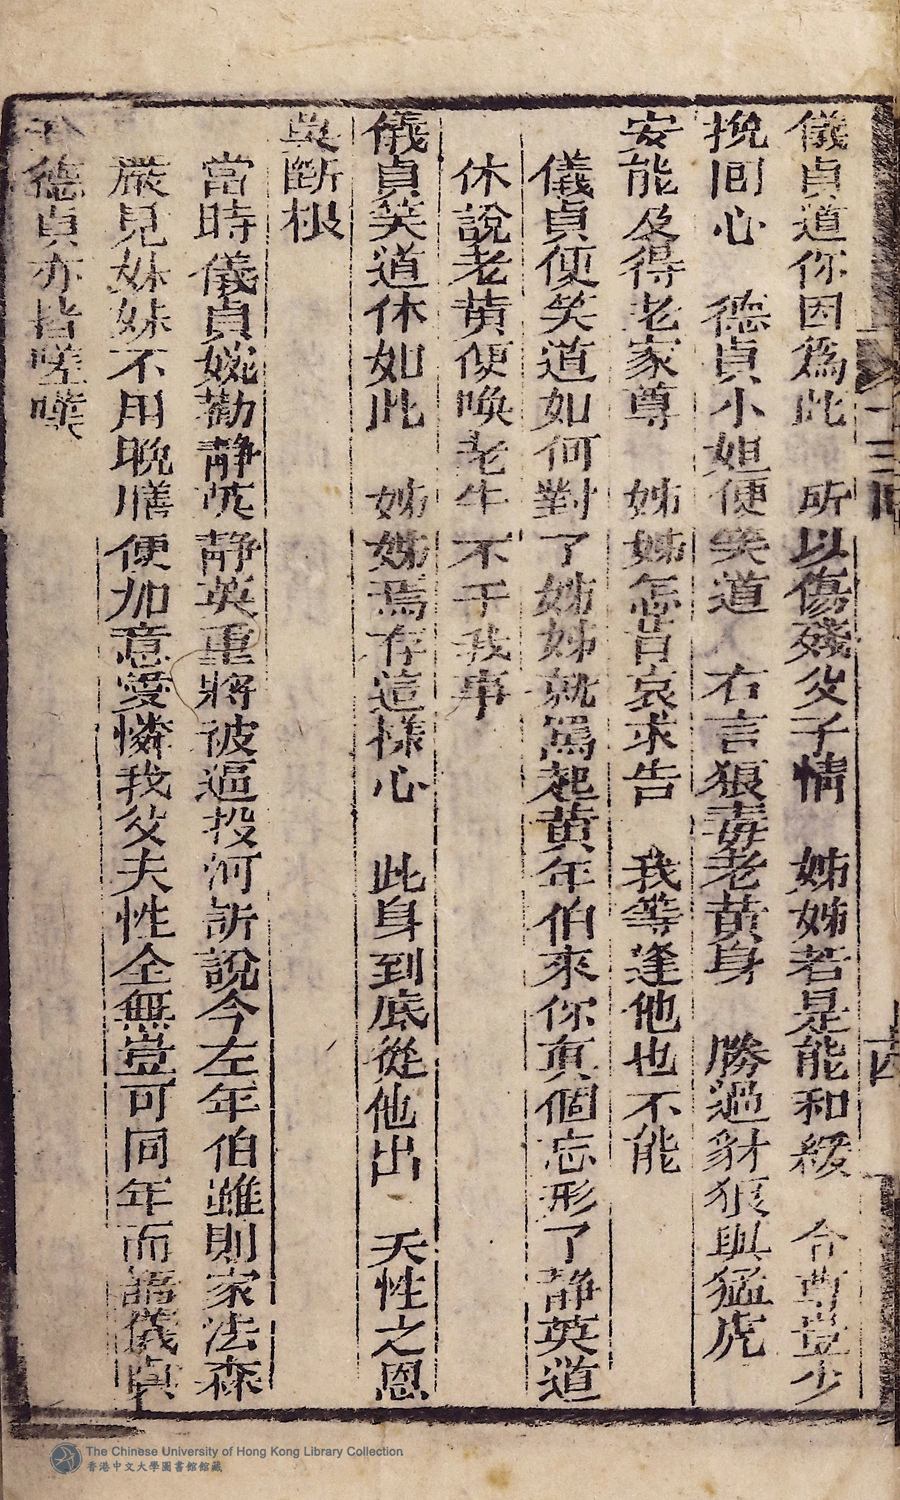 儀貞道你因爲此　所以傷殘父子情　姊姊若是能和緩　令尊豈少
挽回心　德貞小姐便笑道　右言狼毒老黃身　勝過豺狼與猛虎
安能及得老家尊　姊姊怎昔哀求告　我等逢他也不能
儀貞便笑道如何對了姊姊就罵起黃年伯來你真個忘形了静英道
休說老黃便喚老牛不干我事
儀貞笑道休如此　姊姊焉存這樣心　此身到底從他出　天性之恩
莫斷根
當時儀貞婉勸静英静英重將被逼投河訴說今左年伯雖則家法森
嚴見妹妹不用晚膳便加意愛憐我父夫性全無豈可同年而語儀貞
德貞亦皆嗟嘆
十三回
十四
The Chinese University of Hong Kong Library Collection
香港中文大學圖書館館藏